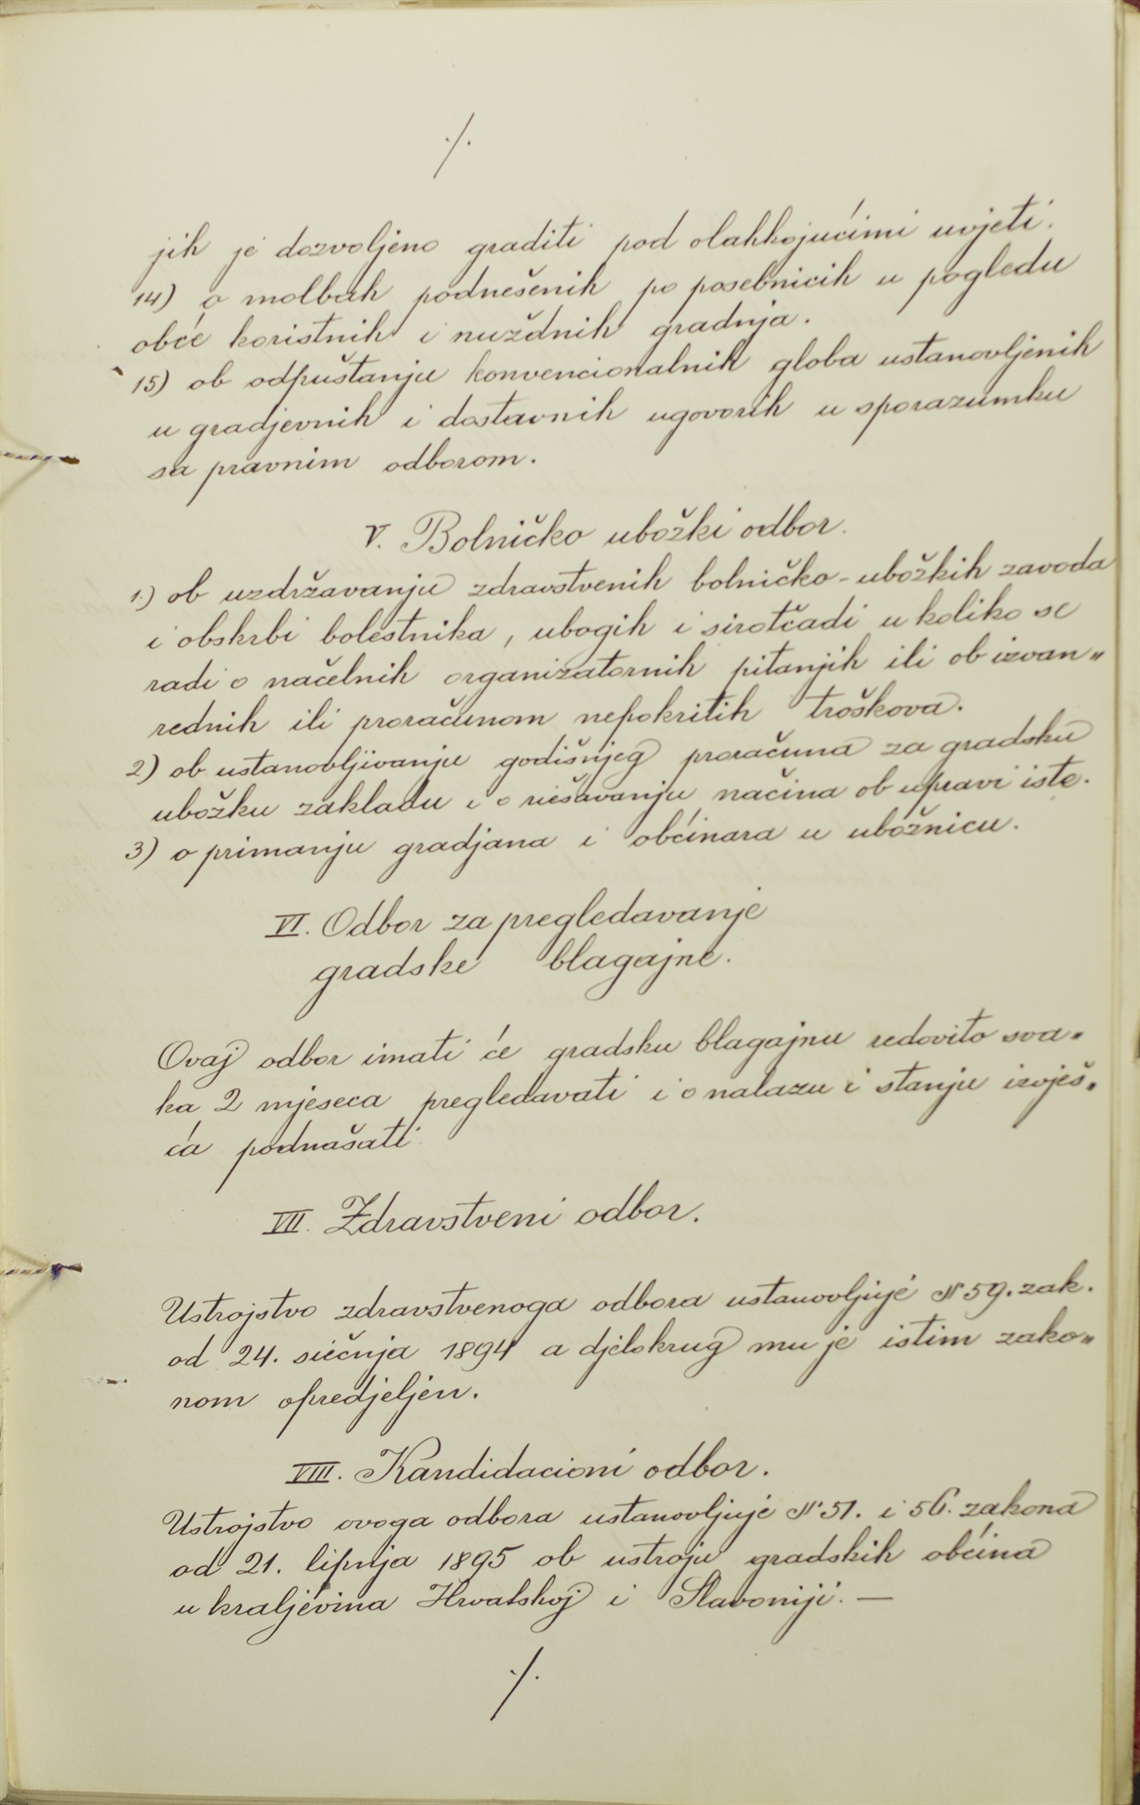 ./.
jih je dozvoljeno graditi pod olahkojućimi uvjeti.
14) o molbah podnešenih po posebnicih u pogledu
obće koristnih i nuždnih gradnja.
15) ob odpuštanju konvencionalnih globa ustanovljenih
u gradjevnih i dostavnih ugovorih u sporazumku
sa pravnim odborom.
V. Bolničko ubožki odbor.
1.) ob uzdržavanju zdravstvenih bolničko-ubožkih zavoda
i obskrbi bolestnika, ubogih i sirotčadi u koliko se
radi o načelnih organizatornih pitanjih ili ob izvan„
rednih ili proračunom nepokritih troškova.
2) ob ustanovljivanju godišnjeg proračuna za gradsku
ubožku zakladu i o riešavanju načina ob upravi iste.
3) o primanju gradjana i obćinara u ubožnicu.
VI. Odbor za pregledavanje
gradske blagajne.
Ovaj odbor imati će gradsku blagajnu redovito sva„
ka 2 mjeseca pregledavati i o nalazu i stanju izvješ„
ća podnašati
VII. Zdravstveni odbor.
Ustrojstvo zdravstvenoga odbora ustanovljuje § 59. zak.
od 24. siečnja 1894 a djelokrug mu je istim zako„
nom opredjeljen.
VIII. Kandidacioni odbor.
Ustrojstvo ovoga odbora ustanovljuje § 51. i 56. zakona
od 21. lipnja 1895 ob ustroju gradskih obćina
u kraljevina Hrvatskoj i Slavoniji. —
./.